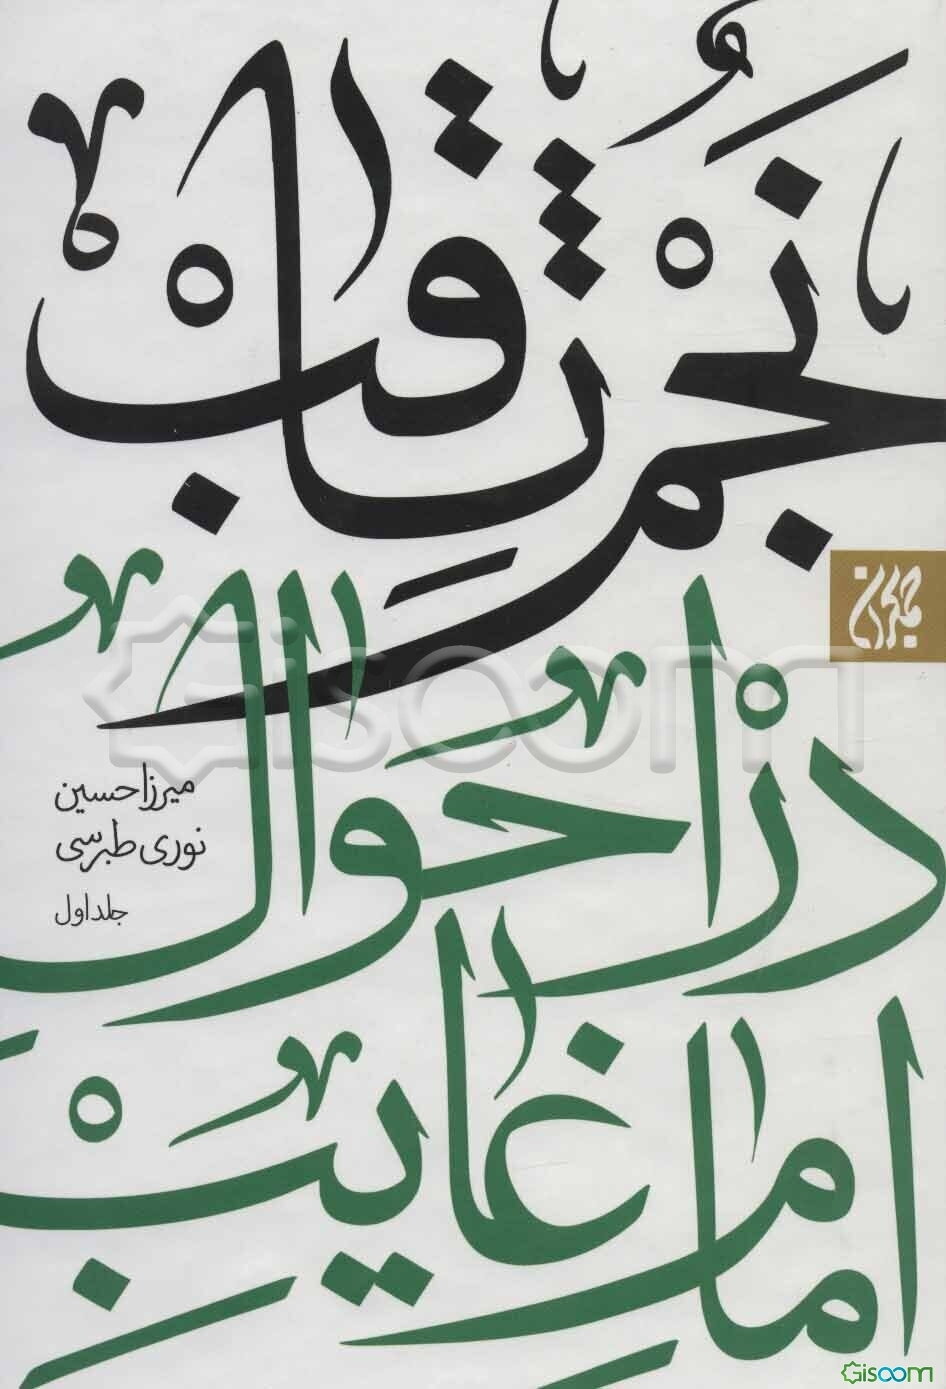 نجم ثاقب
جمکران
در احوال
میرزا حسین
نوری طبرسی
جلد اول
امام غایب
Gisoom
Gisoom